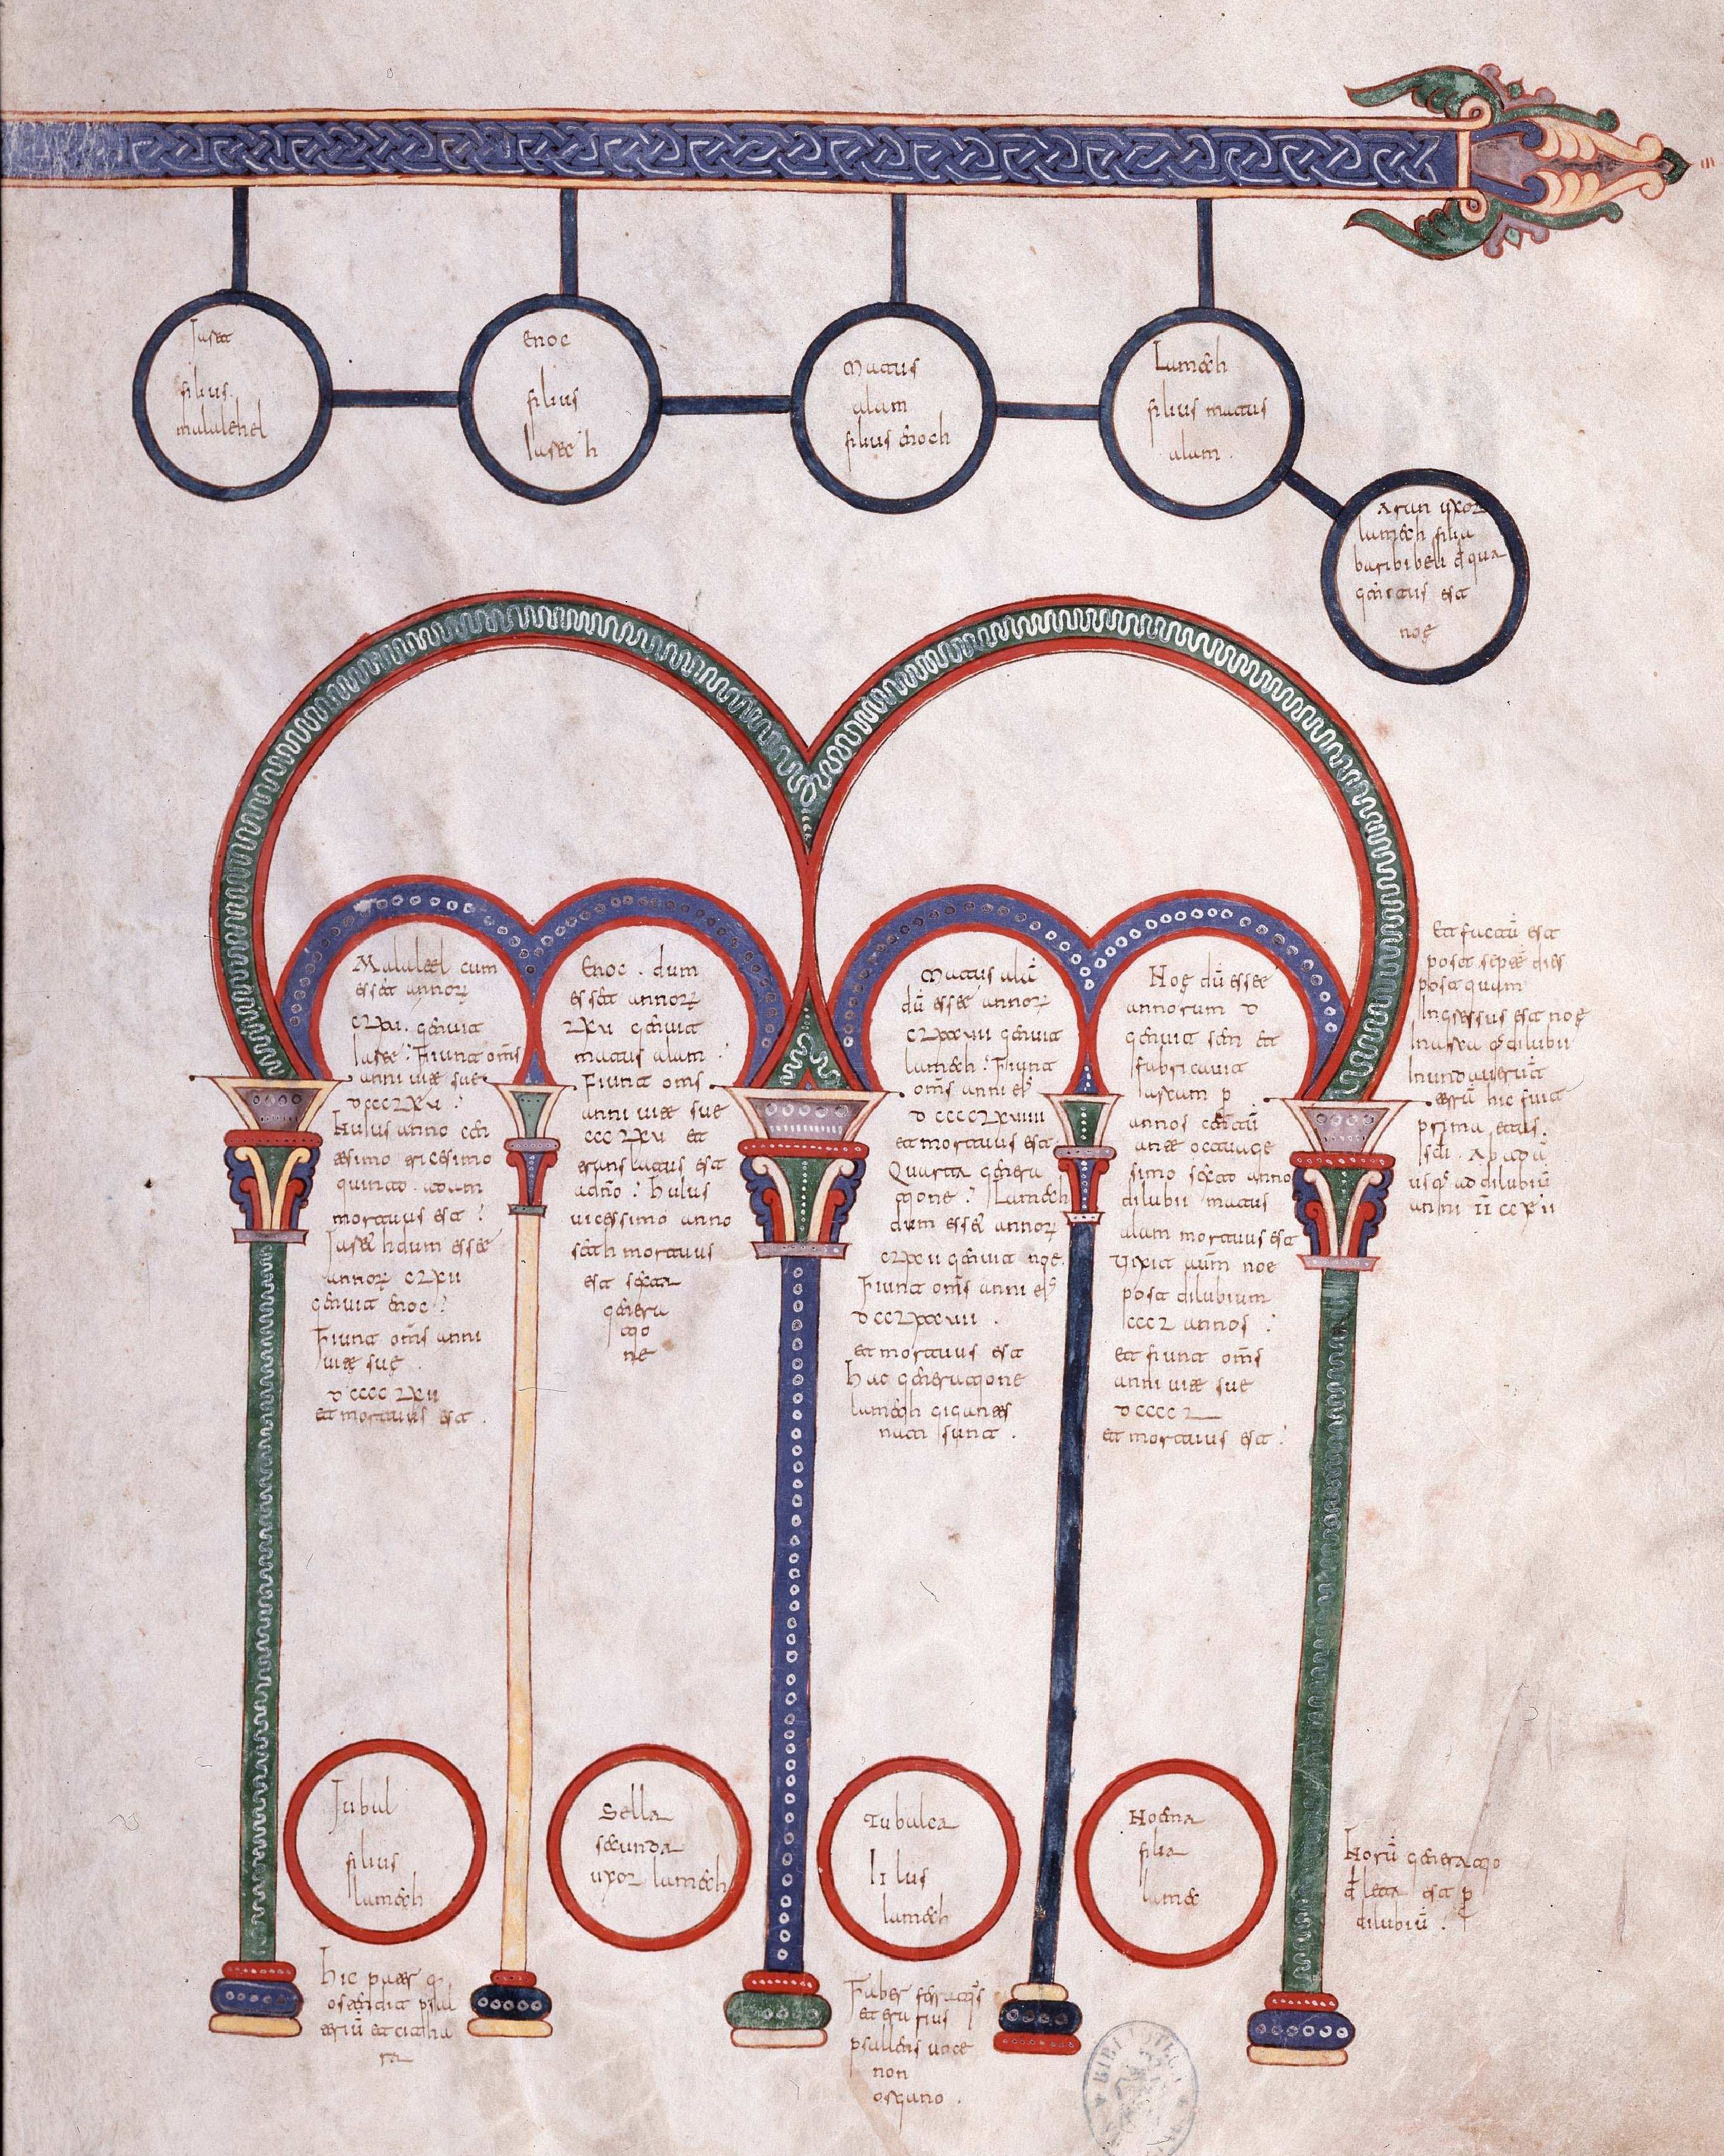 Iaret
filius
malalehel
Enoc
filius
Iareth
Matus
alam
filius enoch
Lamech
filius matus
alam.
Arun uxor
lamech filia
baribibeli de qua
genitus est
noę
Malaleel cum
esset annorꝝ
clxu. genuit
Iareth: Fiunt om̅s
anni uite sue
dcccxlxu:
Huius anno cen
tesimo tricesimo
quinto. adam
mortuus est:
Iareth dum esset
annorꝝ clxii
genuit enoc:
Fiunt om̅s anni
uite suę.
dcccclxii
et mortuus est.
Enoc. dum
esset annorꝝ
lxu genuit
matus alam:
Fiunt om̅s
anni uite sue
ccclxu et
translatus est
a dn̅o: huius
uicessimo anno
seth mortuus
est sexta
genera
tio
ne
Matus ala̅
du̅ esset annorꝝ
clxxxuii genuit
lamech: Fiunt
om̅s anni eꝰ
dcccclxuiiii
et mortuus est.
Quarta genera
tione: Lamech
dum esset annorꝝ
clxxxii genuit noe.
Fiunt om̅s anni eꝰ
dcclxxuii.
et mortuus est
hac generatione
lamech gigantes
nati sunt.
Noę du̅ esset
annorum d
genuit sem et
fabricauit
arcam p
annos centu̅
ante octauage
simo sexto anno
dilubii matus
alam mortuus est
Uixit aut̅ noe
post dilubium
cccl annos:
et fiunt om̅s
anni uite sue
dccccl
et mortuus est:
Et factu̅ est
post septe̅ dies
postquam
Ingressus est noę
In arca aq̅ dilubii
Inundauerunt
terra̅ hic finit
prima etas.
scl̅i. Ab ada̅
usqꝫ ad dilubiu̅
anni ii ccxlii
Iubal
filius
lamech
Sella
secunda
uxor lamech
Tubalca
In filius
lamech
Noema
filia
lamec
Horu̅ generatio
deleta est p
dilubiu̅:
hic pater q
ostendit psal
teriu̅ et citha
ra
Faber ferri atqꝫ
et eru fius
psallens uoce
non
organo.